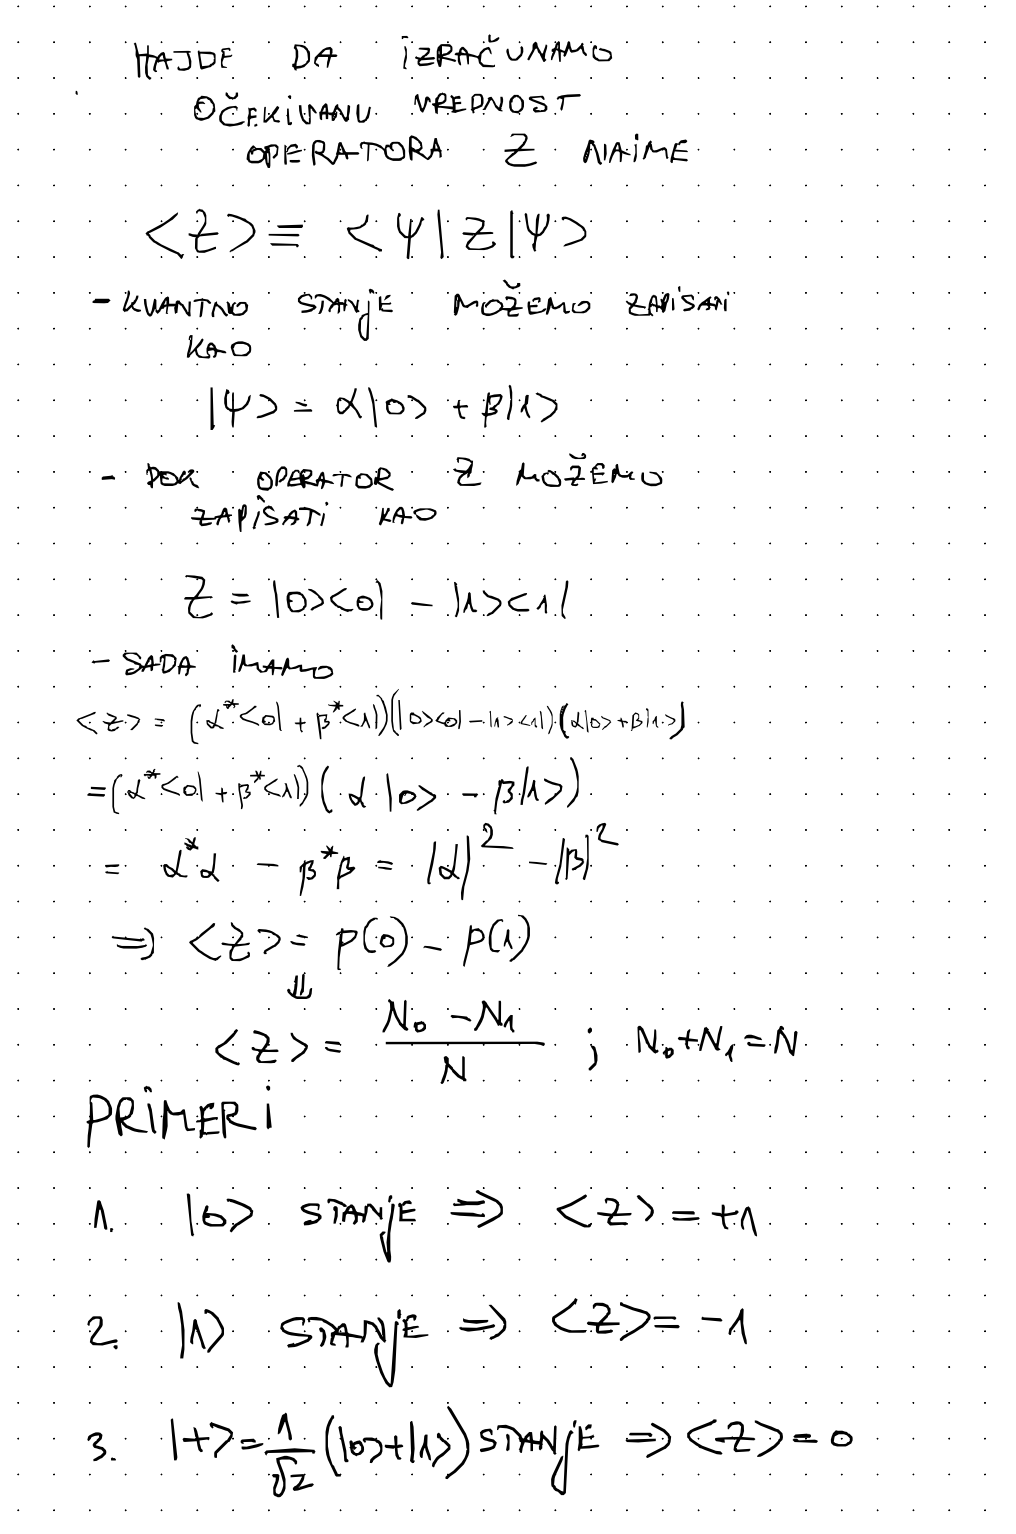 HAJDE DA IZRAČUNAMO
OČEKIVANU VREDNOST
OPERATORA Z NAIME
<Z> ≡ <Ψ|Z|Ψ>
- KVANTNO STANJE MOŽEMO ZAPISATI
KAO
|Ψ> = α|0> + β|1>
- DOK OPERATOR Z MOŽEMO
ZAPISATI KAO
Z = |0><0| - |1><1|
- SADA IMAMO
<Z> = (α*<0| + β*<1|)(|0><0| - |1><1|)(α|0> + β|1>)
= (α*<0| + β*<1|)(α|0> - β|1>)
= α*α - β*β = |α|² - |β|²
⇒ <Z> = p(0) - p(1)
⇓
<Z> = (N₀ - N₁)/N ; N₀+N₁=N
PRIMERI
1. |0> STANJE ⇒ <Z> = +1
2. |1> STANJE ⇒ <Z> = -1
3. |+> = 1/√2 (|0>+|1>) STANJE ⇒ <Z> = 0